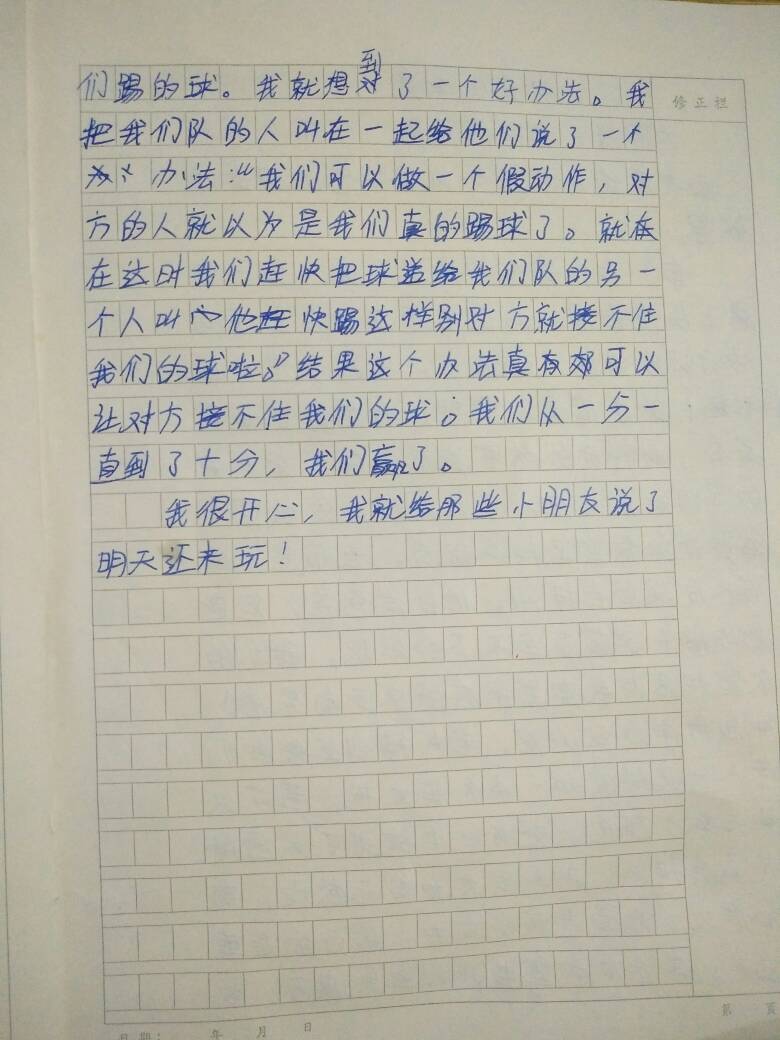 们踢的球。我就想到了一个好办法。我
修正栏
把我们队的人叫在一起给他们说了一个
办法：“我们可以做一个假动作，对
方的人就以为是我们真的踢球了。就在
在这时我们赶快把球送给我们队的另一
个人叫他赶快踢这样别对方就接不住
我们的球啦。”结果这个办法真有效可以
让对方接不住我们的球。我们从一分一
直到了十分，我们赢了。
我很开心，我就给那些小朋友说了
明天还来玩！
第 頁
日期： 年 月 日